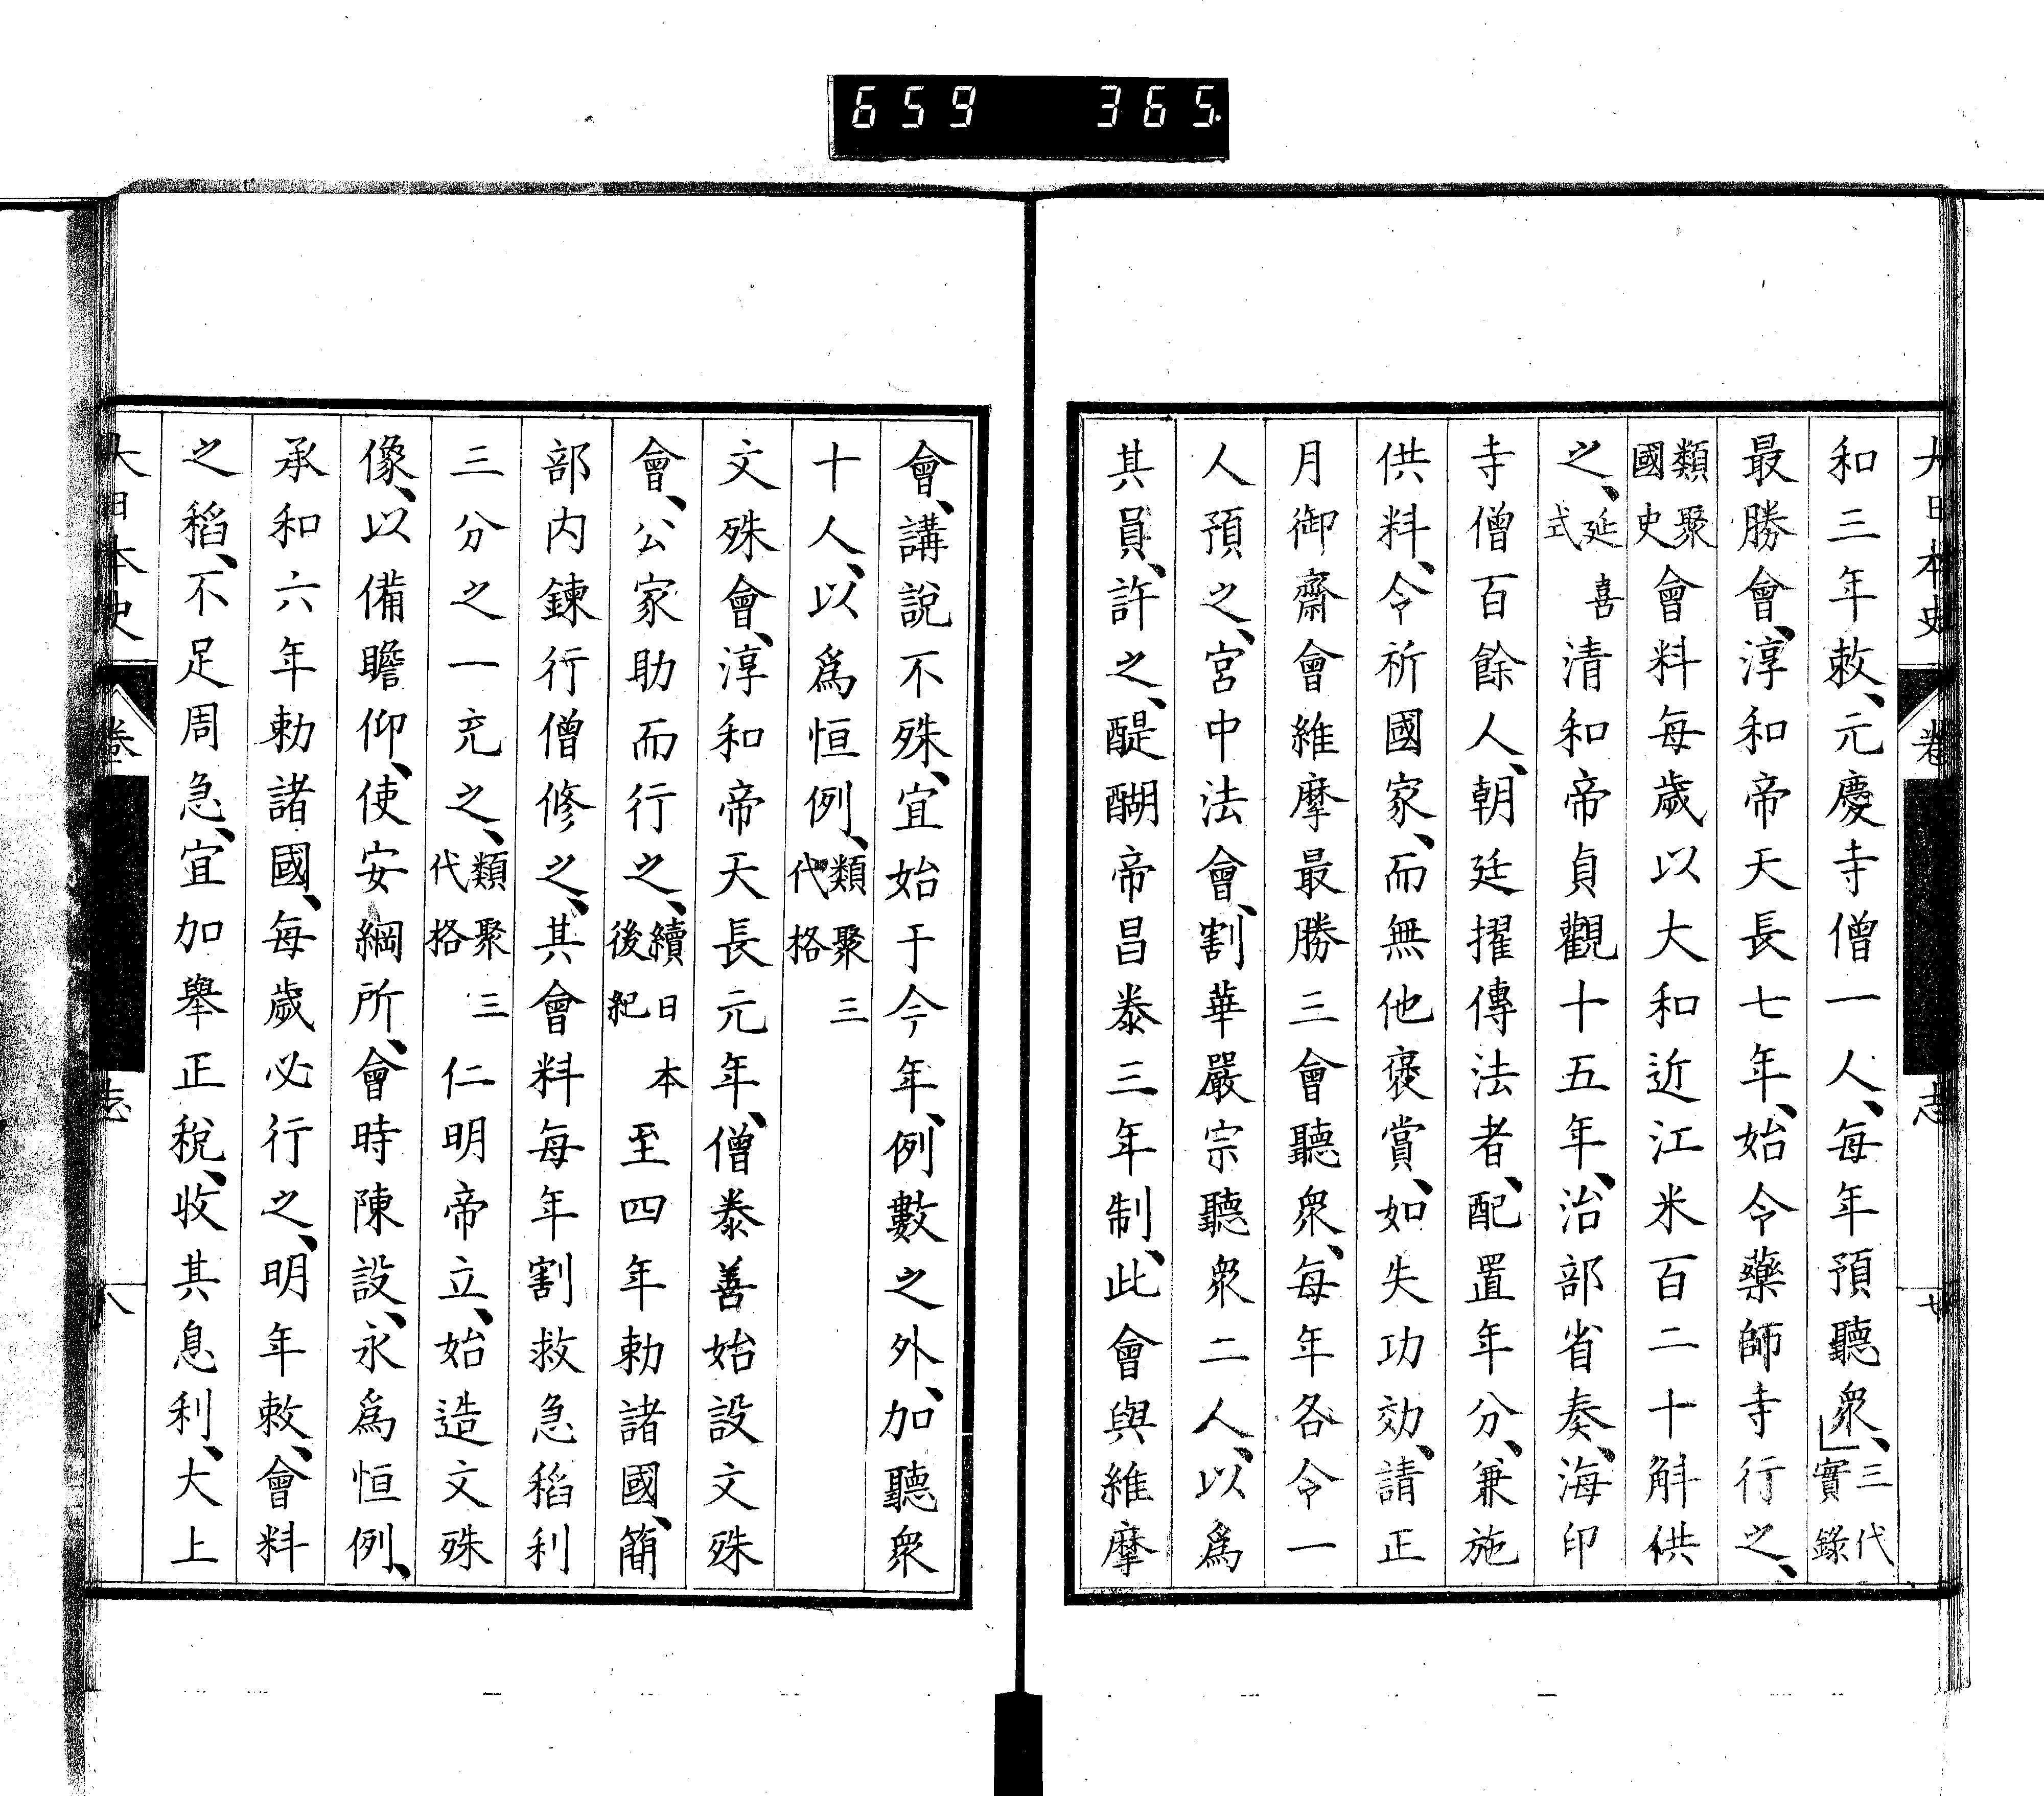 659 365
大日本史 卷 志 七
和三年敕、元慶寺僧一人、每年預聽衆、」三代實錄
最勝會、淳和帝天長七年、始令藥師寺行之、
類聚國史會料每歲以大和近江米百二十斛供
之、延喜式淸和帝貞觀十五年、治部省奏、海印
寺僧百餘人、朝廷擢傳法者、配置年分、兼施
供料、令祈國家、而無他褒賞、如失功効、請正
月御齋會維摩最勝三會聽衆、每年各令一
人預之、宮中法會、割華嚴宗聽衆二人、以爲
其員、許之、醍醐帝昌泰三年制、此會與維摩
會、講說不殊、宜始于今年、例數之外、加聽衆
十人、以爲恒例、類聚三代格
文殊會、淳和帝天長元年、僧泰善始設文殊
會、公家助而行之、續日本後紀至四年勅諸國、簡
部內鍊行僧修之、其會料每年割救急稻利
三分之一充之、類聚三代格仁明帝立、始造文殊
像、以備瞻仰、使安綱所、會時陳設、永爲恒例、
承和六年勅諸國、每歲必行之、明年敕、會料
之稻、不足周急、宜加舉正稅、收其息利、大上
大日本史 卷 志 八